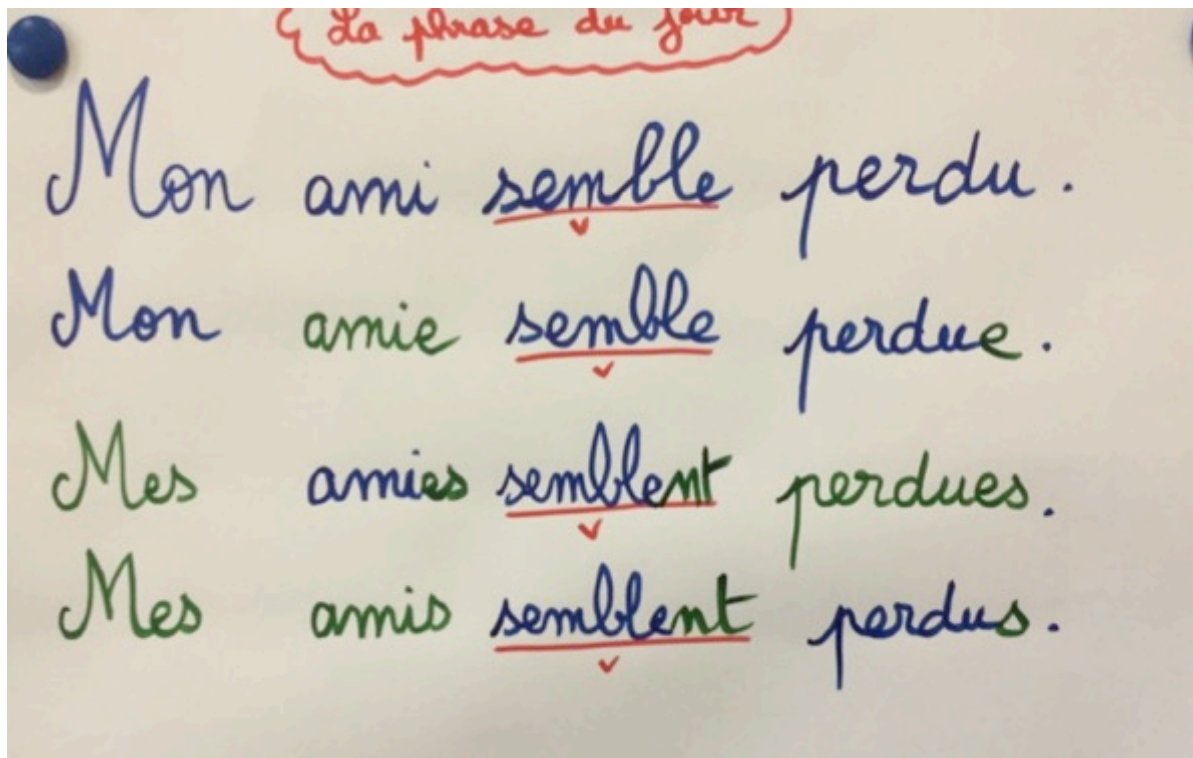 La phrase du jour
Mon ami semble perdu.
v
Mon amie semble perdue.
v
Mes amies semblent perdues.
v
Mes amis semblent perdus.
v